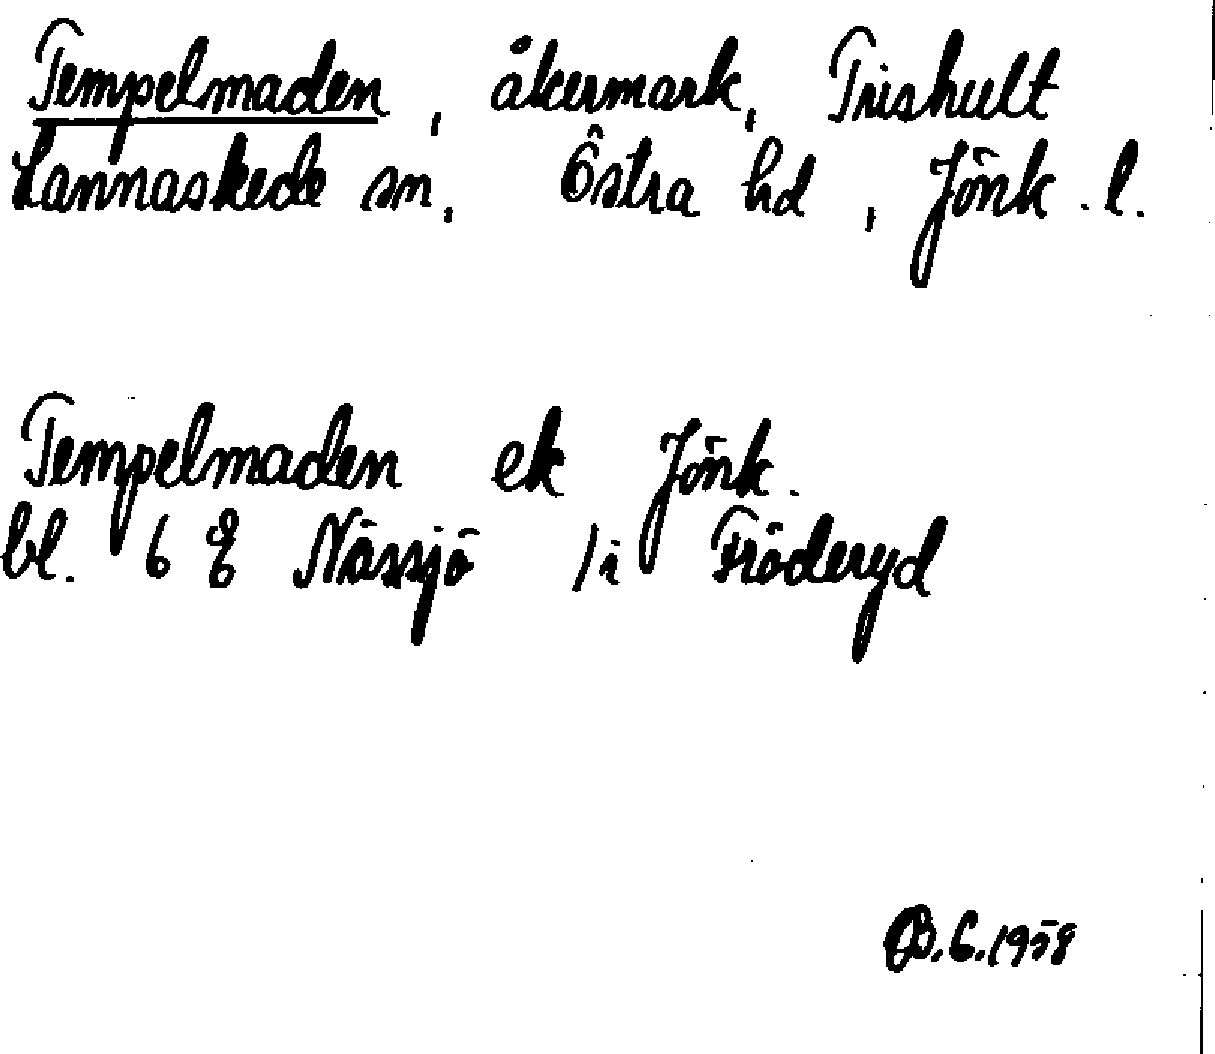 Tempelmaden, åkermark, Trishult
Lannaskede sn, Östra hd, Jönk. l.
Tempelmaden ek Jönk.
bl. 6 8 Nässjö /i Fröderyd
B.C. 1958